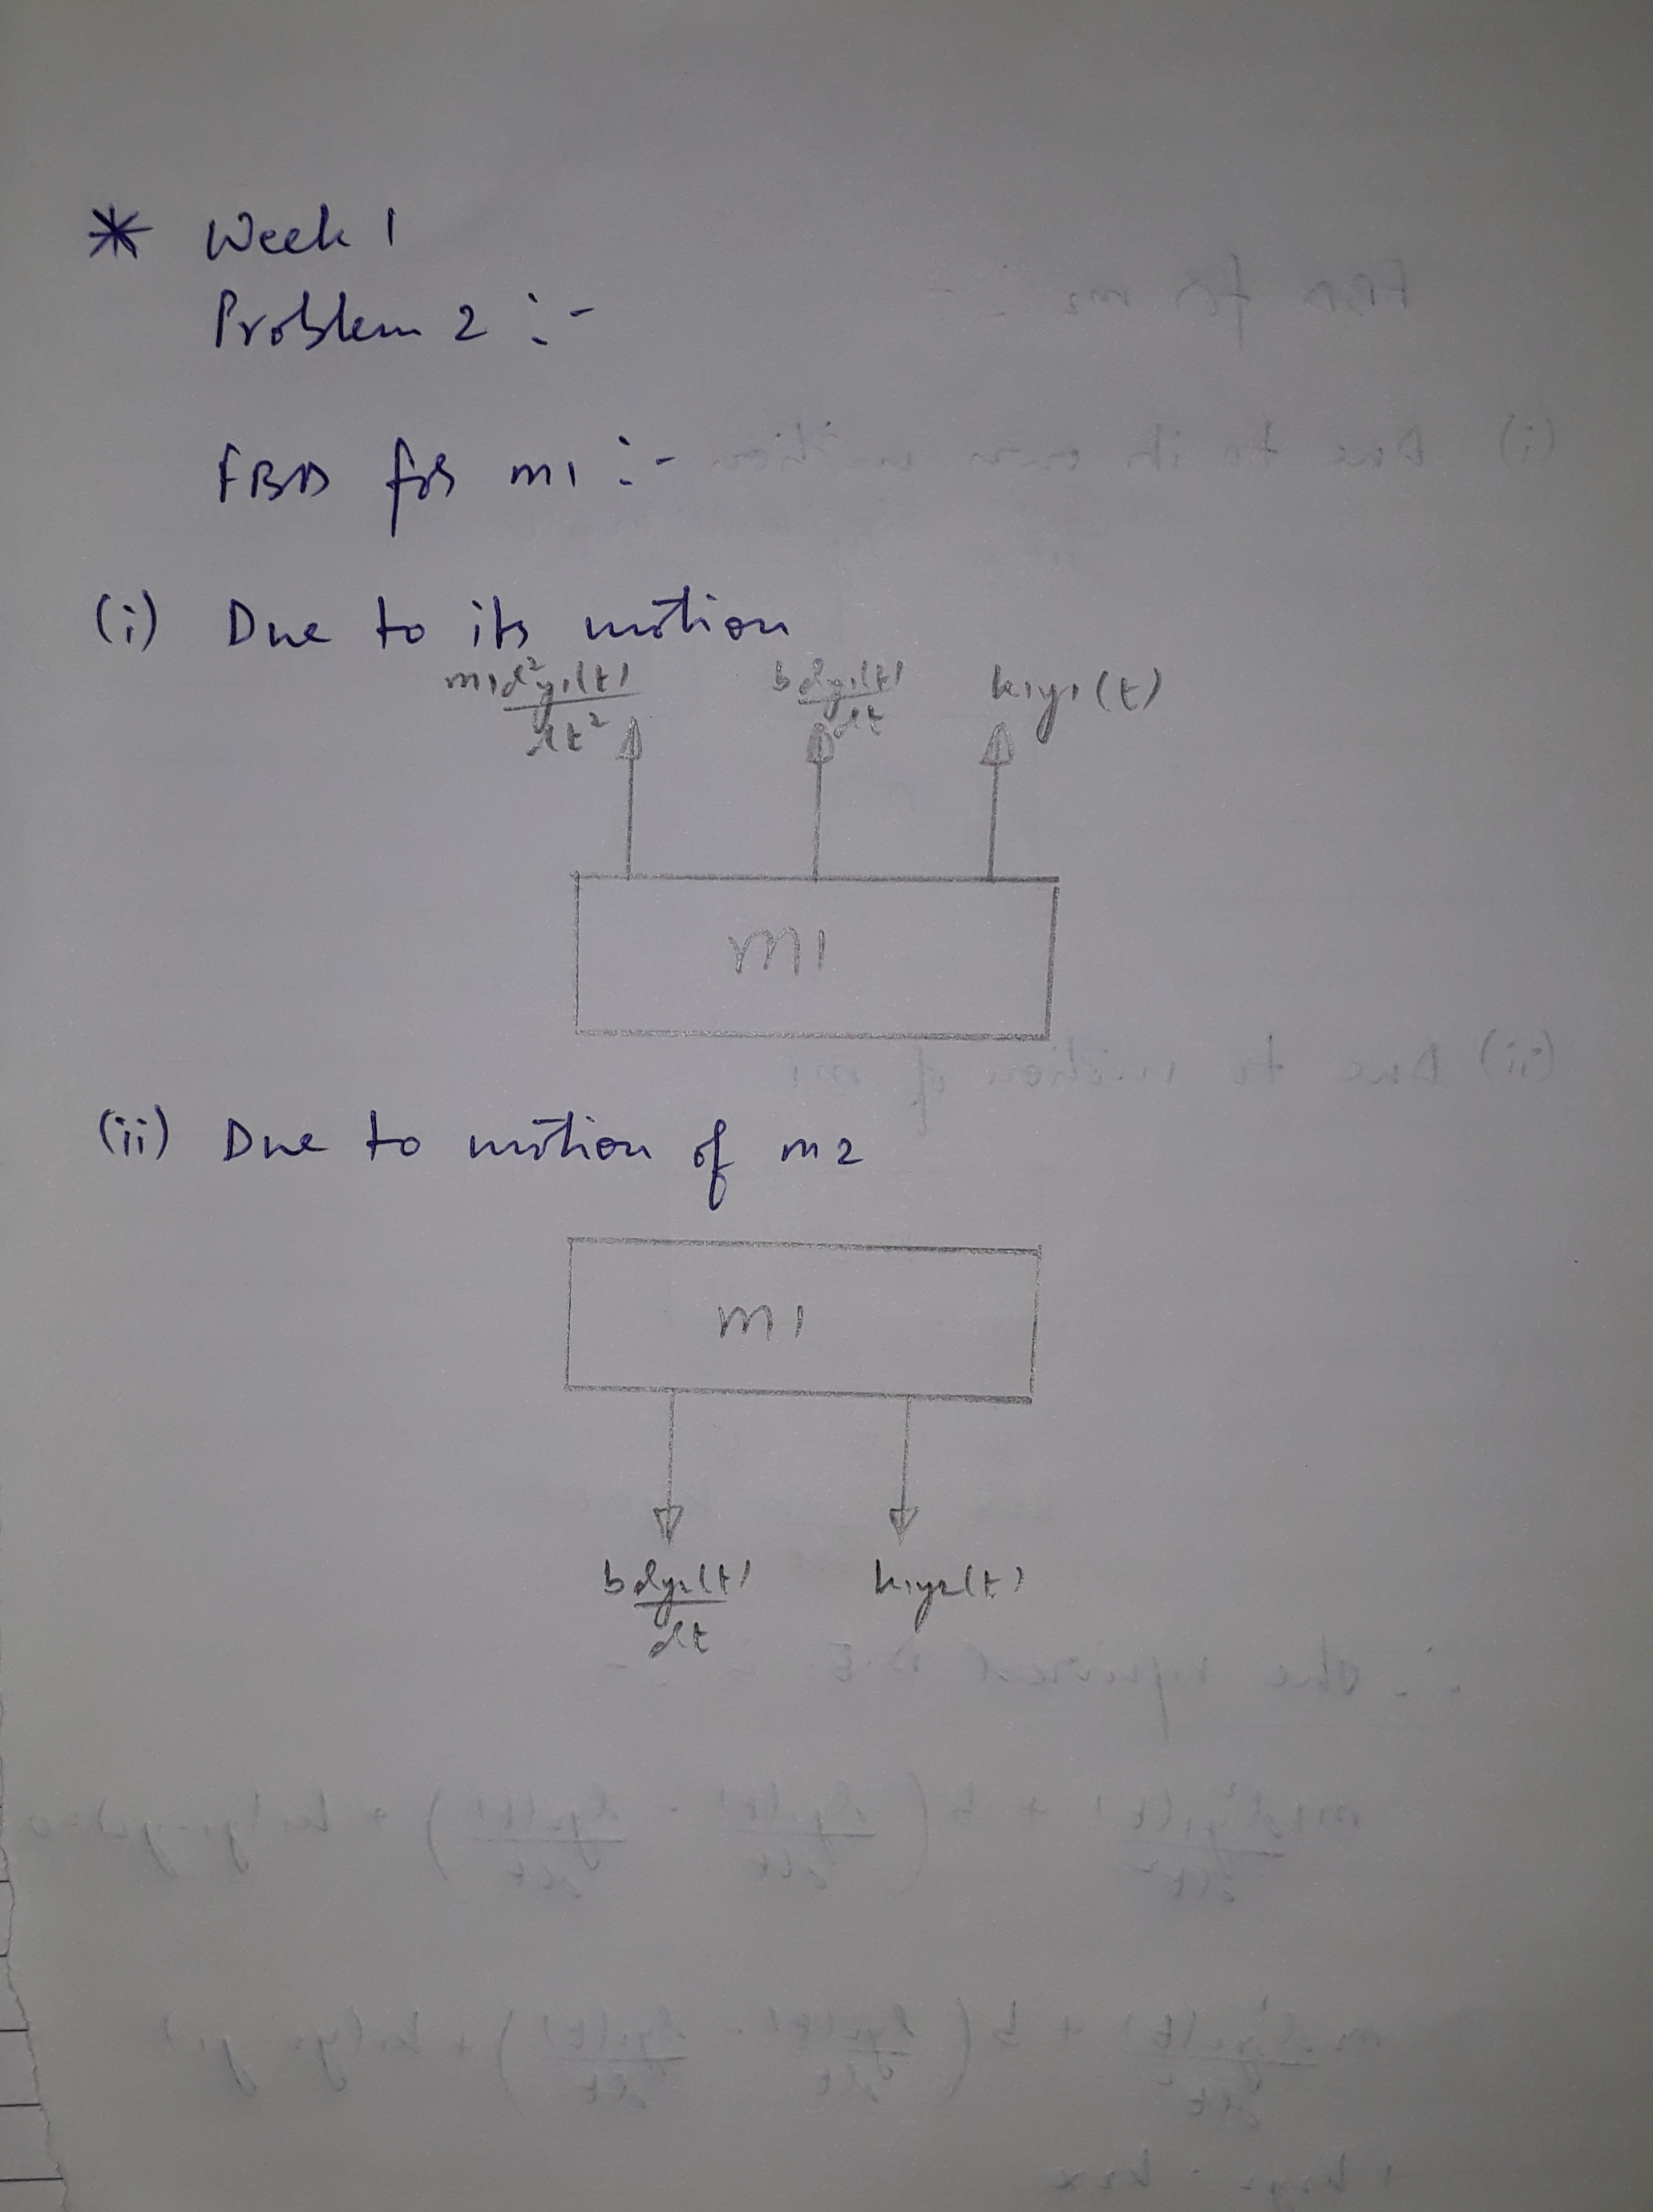 * Week 1
Problem 2 :-
FBD for m1 :-
(i) Due to its motion
m1d²y1(t) bdy1(t) k1y1(t)
dt² dt
m1
(ii) Due to motion of m2
m1
bdy2(t) k1y2(t)
dt